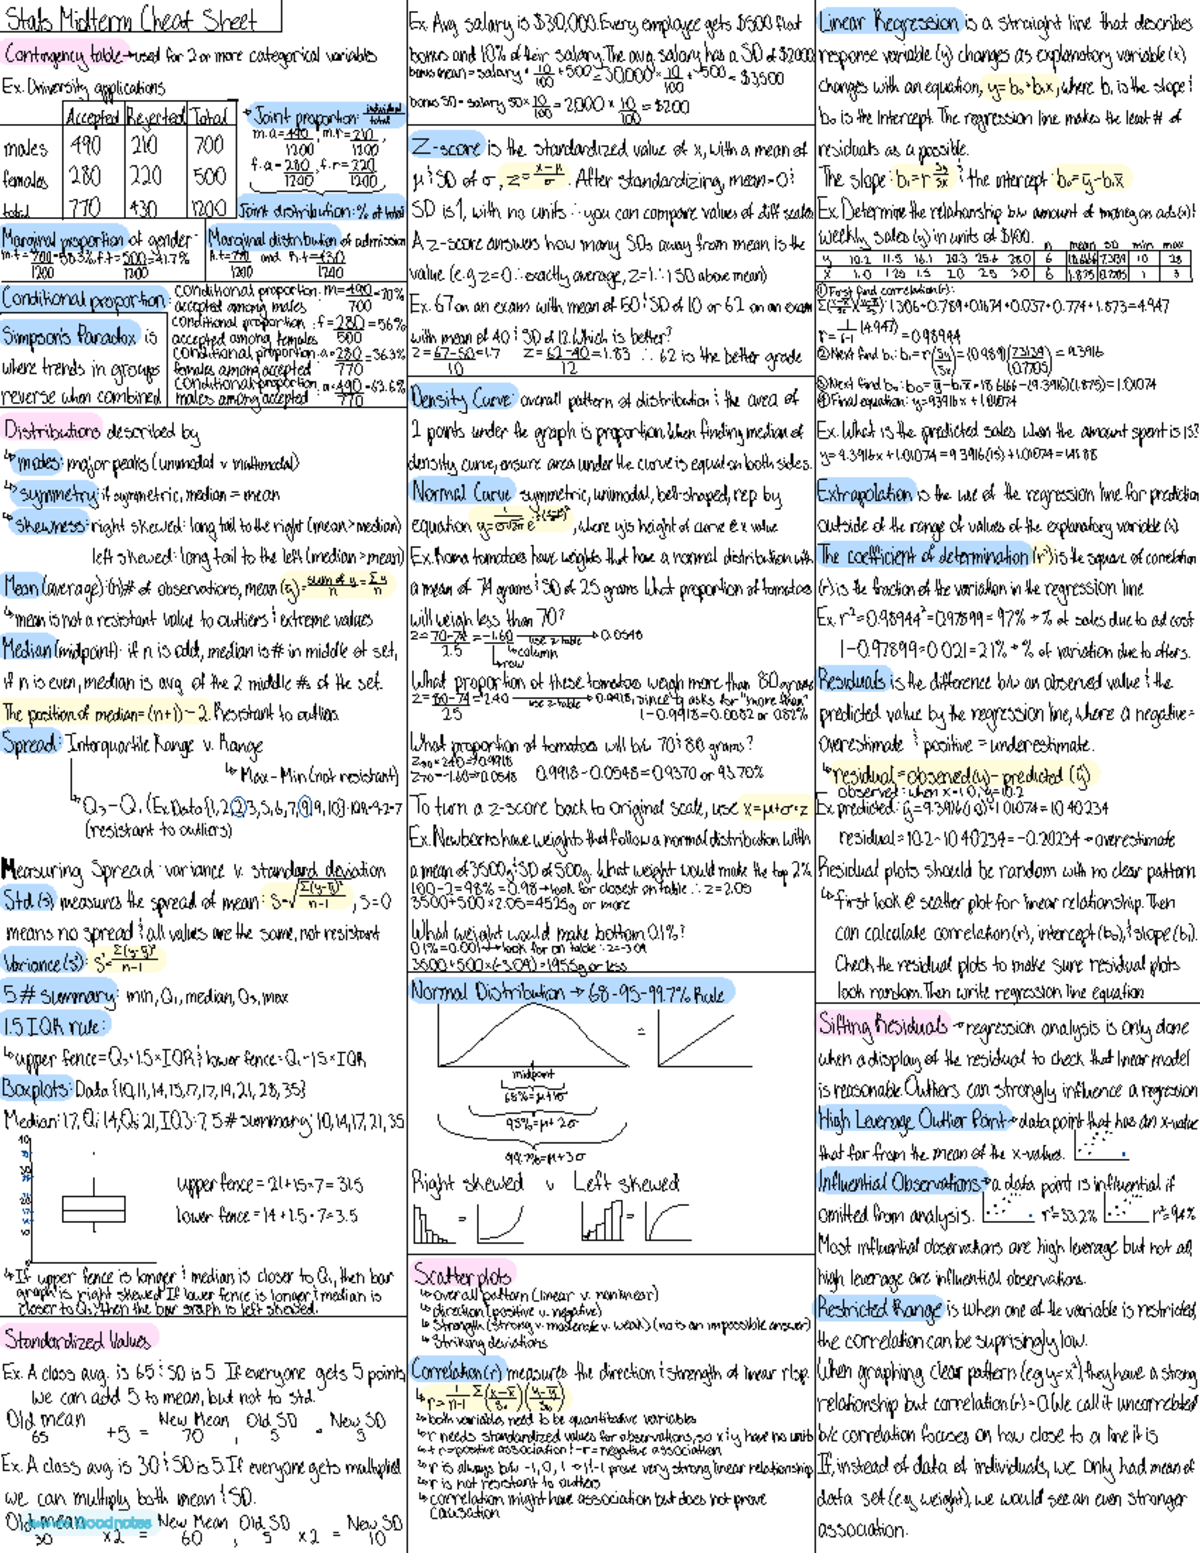 Stats Midterm Cheat Sheet
Contingency table → used for 2 or more categorical variables
Ex. University applications
Accepted Rejected Total
males 490 210 700
females 280 220 500
total 770 430 1200
Joint proportion: individual/total
m.a = 490/1200, m.r = 210/1200,
f.a = 280/1200, f.r = 220/1200
Joint distribution: % of total
Marginal proportion of gender
m.t = 700/1200 = 58.3%, f.t = 500/1200 = 41.7%
Marginal distribution of admission
Conditional proportion:
conditional proportion: m = 490/700 = 70%
accepted among males
conditional proportion: f = 280/500 = 56%
accepted among females
conditional proportion: a = 280/770 = 36.3%
females among accepted
conditional proportion: a = 490/770 = 63.6%
males among accepted
Simpson's Paradox is
where trends in groups
reverse when combined
Distributions described by
↳ modes: major peaks (unimodal v multimodal)
↳ symmetry: if symmetric, median = mean
↳ skewness: right skewed: long tail to the right (mean > median)
left skewed: long tail to the left (median > mean)
Mean (average): (n) # of observations, mean (ȳ) = sum of y/n = Σy/n
↳ mean is not a resistant value to outliers & extreme values
Median (midpoint): if n is odd, median is # in middle of set,
if n is even, median is avg of the 2 middle #s of the set.
The position of median = (n+1) ÷ 2. Resistant to outliers.
Spread: Interquartile Range v. Range
↳ Max - Min (not resistant)
(resistant to outliers)
Measuring Spread: variance v. standard deviation
Std (s) measures the spread of mean: s = √(Σ(y-ȳ)²/(n-1)), s = 0
means no spread & all values are the same, not resistant
Variance (s²): s² = Σ(y-ȳ)²/(n-1)
5 # summary: min, Q₁, median, Q₃, max
1.5 IQR rule:
↳ upper fence = Q₃ + 1.5 × IQR & lower fence = Q₁ - 1.5 × IQR
Boxplots: Data {10, 11, 14, 15, 17, 17, 19, 21, 28, 35}
Median: 17, Q₁: 14, Q₃: 21, IQR: 7, 5 # summary: 10, 14, 17, 21, 35
upper fence = 21 + 1.5 × 7 = 31.5
lower fence = 14 + 1.5 · 7 = 3.5
↳ If upper fence is longer & median is closer to Q₁, then bar
graph is right skewed. If lower fence is longer & median is
closer to Q₃, then the bar graph is left skewed.
Standardized Values
Ex. A class avg. is 65 & SD is 5. If everyone gets 5 points,
we can add 5 to mean, but not to std.
Old mean 65 + 5 = New Mean 70, Old SD 5 = New SD 5
Ex. A class avg is 30 & SD is 5. If everyone gets multiplied
we can multiply both mean & SD.
Old mean 30 × 2 = New Mean 60, Old SD 5 × 2 = New SD 10
Goodnotes
Ex. Avg salary is $30,000. Every employee gets $500 flat
bonus and 10% of their salary. The avg salary has a SD of $2000
bonus mean = salary × 10/100 + 500 = 30,000 × 10/100 + 500 = $3500
bonus SD = salary SD × 10/100 = 2000 × 10/100 = $200
Z-score is the standardized value of x, with a mean of
μ & SD of σ, z = (x-μ)/σ. After standardizing, mean = 0 &
SD is 1, with no units ∴ you can compare values of diff scales
A z-score answers how many SDs away from mean is the
value (e.g z = 0 ∴ exactly average, z = 1 ∴ 1 SD above mean)
Ex. 67 on an exam with mean of 50 & SD of 10 or 62 on an exam
with mean of 40 & SD of 12. Which is better?
z = (67-50)/10 = 1.7 z = (62-40)/12 = 1.83 ∴ 62 is the better grade
Density Curve: overall pattern of distribution & the area of
2 points under the graph is proportion. When finding median of
density curve, ensure area under the curve is equal on both sides.
Normal Curve: symmetric, unimodal, bell-shaped, rep by
equation, where y is height of curve @ x value
Ex. Roma tomatoes have weights that have a normal distribution with
a mean of 74 grams & SD of 2.5 grams. What proportion of tomatoes
will weigh less than 70?
z = (70-74)/2.5 = -1.60 use z-table → 0.0548
↳ column
↳ row
What proportion of these tomatoes weigh more than 80 grams
z = (80-74)/2.5 = 2.40 use z-table → 0.9918, since q asks for "more than"
1 - 0.9918 = 0.0082 or 0.82%
What proportion of tomatoes will b/w 70 & 80 grams?
z₈₀ = 2.40 → 0.9918
z₇₀ = -1.60 → 0.0548 0.9918 - 0.0548 = 0.9370 or 93.70%
To turn a z-score back to original scale, use x = μ + σ × z
Ex. Newborns have weights that follow a normal distribution with
a mean of 3500g & SD of 500g. What weight would make the top 2%
100 - 2 = 98% = 0.98 → look for closest on table ∴ z = 2.05
3500 + 500 × 2.05 = 4525g or more
What weight would make bottom 0.1%?
0.1% = 0.001 → look for on table ∴ z = -3.09
3500 + 500 × (-3.09) = 1955g or less
Normal Distribution → 68-95-99.7% Rule
=
midpoint
68% = μ ± 1σ
95% = μ ± 2σ
99.7% = μ ± 3σ
Right skewed v Left skewed
= =
Scatterplots
↳ overall pattern (linear v. nonlinear)
↳ direction (positive v. negative)
↳ strength (strong v. moderate v. weak) (no is an impossible answer)
↳ Striking deviations
Correlation (r) measures the direction & strength of linear r/sp.
↳ both variables need to be quantitative variables
↳ r needs standardized values for observations, so x & y have no units
↳ + r = positive association & - r = negative association
↳ r is always b/w -1, 0, 1 → 1 & -1 prove very strong linear relationship
↳ r is not resistant to outliers
↳ correlation might have association but does not prove
causation
Linear Regression is a straight line that describes
response variable (y) changes as explanatory variable (x)
changes with an equation, y = b₀ + b₁x, where b₁ is the slope &
b₀ is the intercept. The regression line makes the least # of
residuals as a possible.
The slope: b₁ = r sy/sx & the intercept: b₀ = ȳ - b₁x̄
Ex. Determine the relationship b/w amount of money on ads (x) &
weekly sales (y) in units of $100.
n mean SD min max
① First find correlation (r):
1.306 + 0.789 + 0.1674 + 0.037 + 0.774 + 1.873 = 4.947
r = 1/(6-1) (4.947) = 0.98944
② Next find b₁: b₁ = r(sy/sx) = (0.989)(7.3134/0.7705) = 9.3916
③ Next find b₀: b₀ = ȳ - b₁x̄ = 18.666 - (9.3916)(1.875) = 1.01074
④ Final equation: y = 9.3916x + 1.01074
Ex. What is the predicted sales when the amount spent is 15?
y = 9.3916x + 1.01074 = 9.3916(15) + 1.01074 = 141.88
Extrapolation is the use of the regression line for prediction
outside of the range of values of the explanatory variable (x)
The coefficient of determination (r²) is the square of correlation
(r) is the fraction of the variation in the regression line
Ex. r² = 0.98944² = 0.97899 = 97% → % of sales due to ad cost
1 - 0.97899 = 0.021 = 2.1% → % of variation due to others.
Residuals is the difference b/w an observed value & the
predicted value by the regression line, where a negative =
overestimate & positive = underestimate.
↳ residual = observed (y) - predicted (ŷ)
observed: when x = 1.0, y = 10.2
Ex. predicted: ŷ = 9.3916(1.0) + 1.01074 = 10.40234
residual = 10.2 - 10.40234 = -0.20234 → overestimate
Residual plots should be random with no clear pattern
↳ first look @ scatter plot for linear relationship. Then
can calculate correlation (r), intercept (b₀), & slope (b₁).
Check the residual plots to make sure residual plots
look random. Then write regression line equation
Sifting Residuals → regression analysis is only done
when a display of the residual to check that linear model
is reasonable. Outliers can strongly influence a regression
High Leverage Outlier Point → data point that has an x-value
that far from the mean of the x-values.
Influential Observations → a data point is influential if
omitted from analysis. r² = 33.2% r² = 94%
Most influential observations are high leverage but not all
high leverage are influential observations.
Restricted Range is when one of the variable is restricted,
the correlation can be suprisingly low.
When graphing clear pattern (e.g y = x²), they have a strong
relationship but correlation (r) = 0. We call it uncorrelated
b/c correlation focuses on how close to a line it is
If, instead of data of individuals, we only had mean of
data set (e.g weight), we would see an even stronger
association.